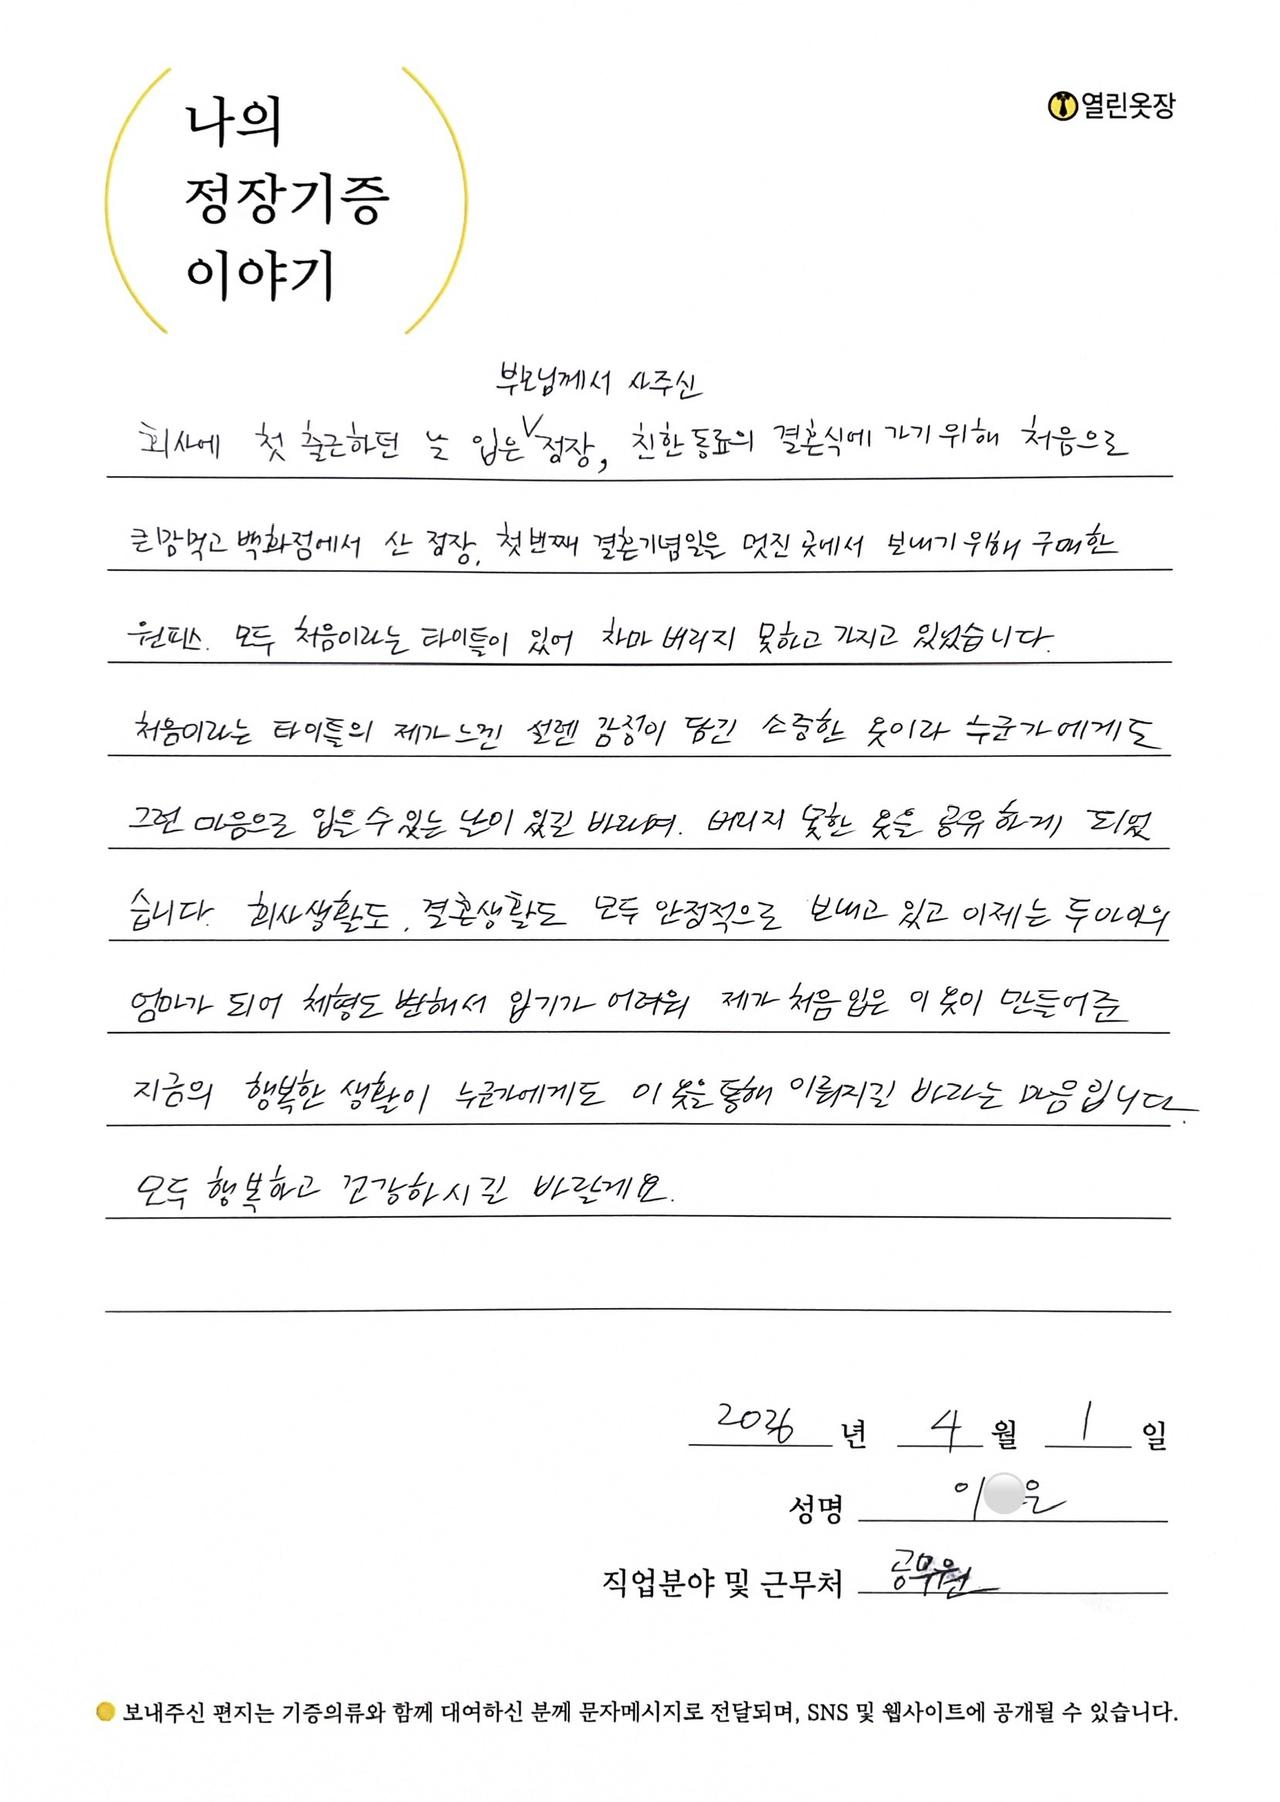 나의
정장기증
이야기
열린옷장
부모님께서 사주신
회사에 첫 출근하던 날 입은 ∨ 정장, 친한 동료의 결혼식에 가기 위해 처음으로
큰맘먹고 백화점에서 산 정장, 첫번째 결혼기념일을 멋진 곳에서 보내기 위해 구매한
원피스. 모두 처음이라는 타이틀이 있어 차마 버리지 못하고 가지고 있었습니다.
처음이라는 타이틀의 제가 느낀 설렌 감정이 담긴 소중한 옷이라 누군가에게도
그런 마음으로 입을 수 있는 날이 있길 바라며. 버리지 못한 옷을 공유하게 되었
습니다. 회사생활도, 결혼생활도 모두 안정적으로 보내고 있고 이제는 두 아이의
엄마가 되어 체형도 변해서 입기가 어려워 제가 처음 입은 이 옷이 만들어준
지금의 행복한 생활이 누군가에게도 이 옷을 통해 이뤄지길 바라는 마음입니다.
모두 행복하고 건강하시길 바랄게요.
2026 년 4 월 1 일
성명 이 은
직업분야 및 근무처 공무원
보내주신 편지는 기증의류와 함께 대여하신 분께 문자메시지로 전달되며, SNS 및 웹사이트에 공개될 수 있습니다.